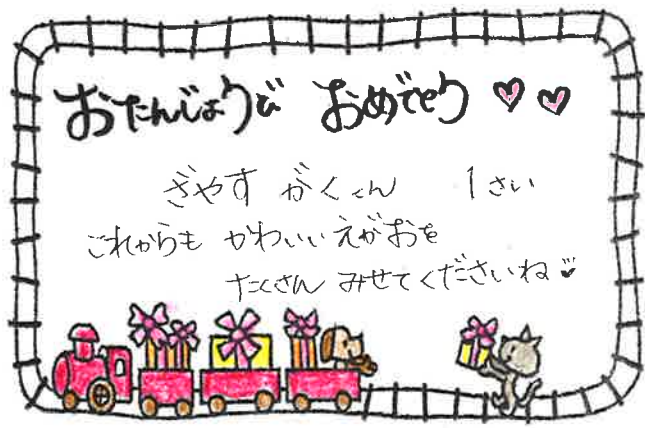 おたんじょうび おめでとう ♡♡
ぎやす がくくん 1さい
これからも かわいいえがおを
たくさん みせてくださいね♡